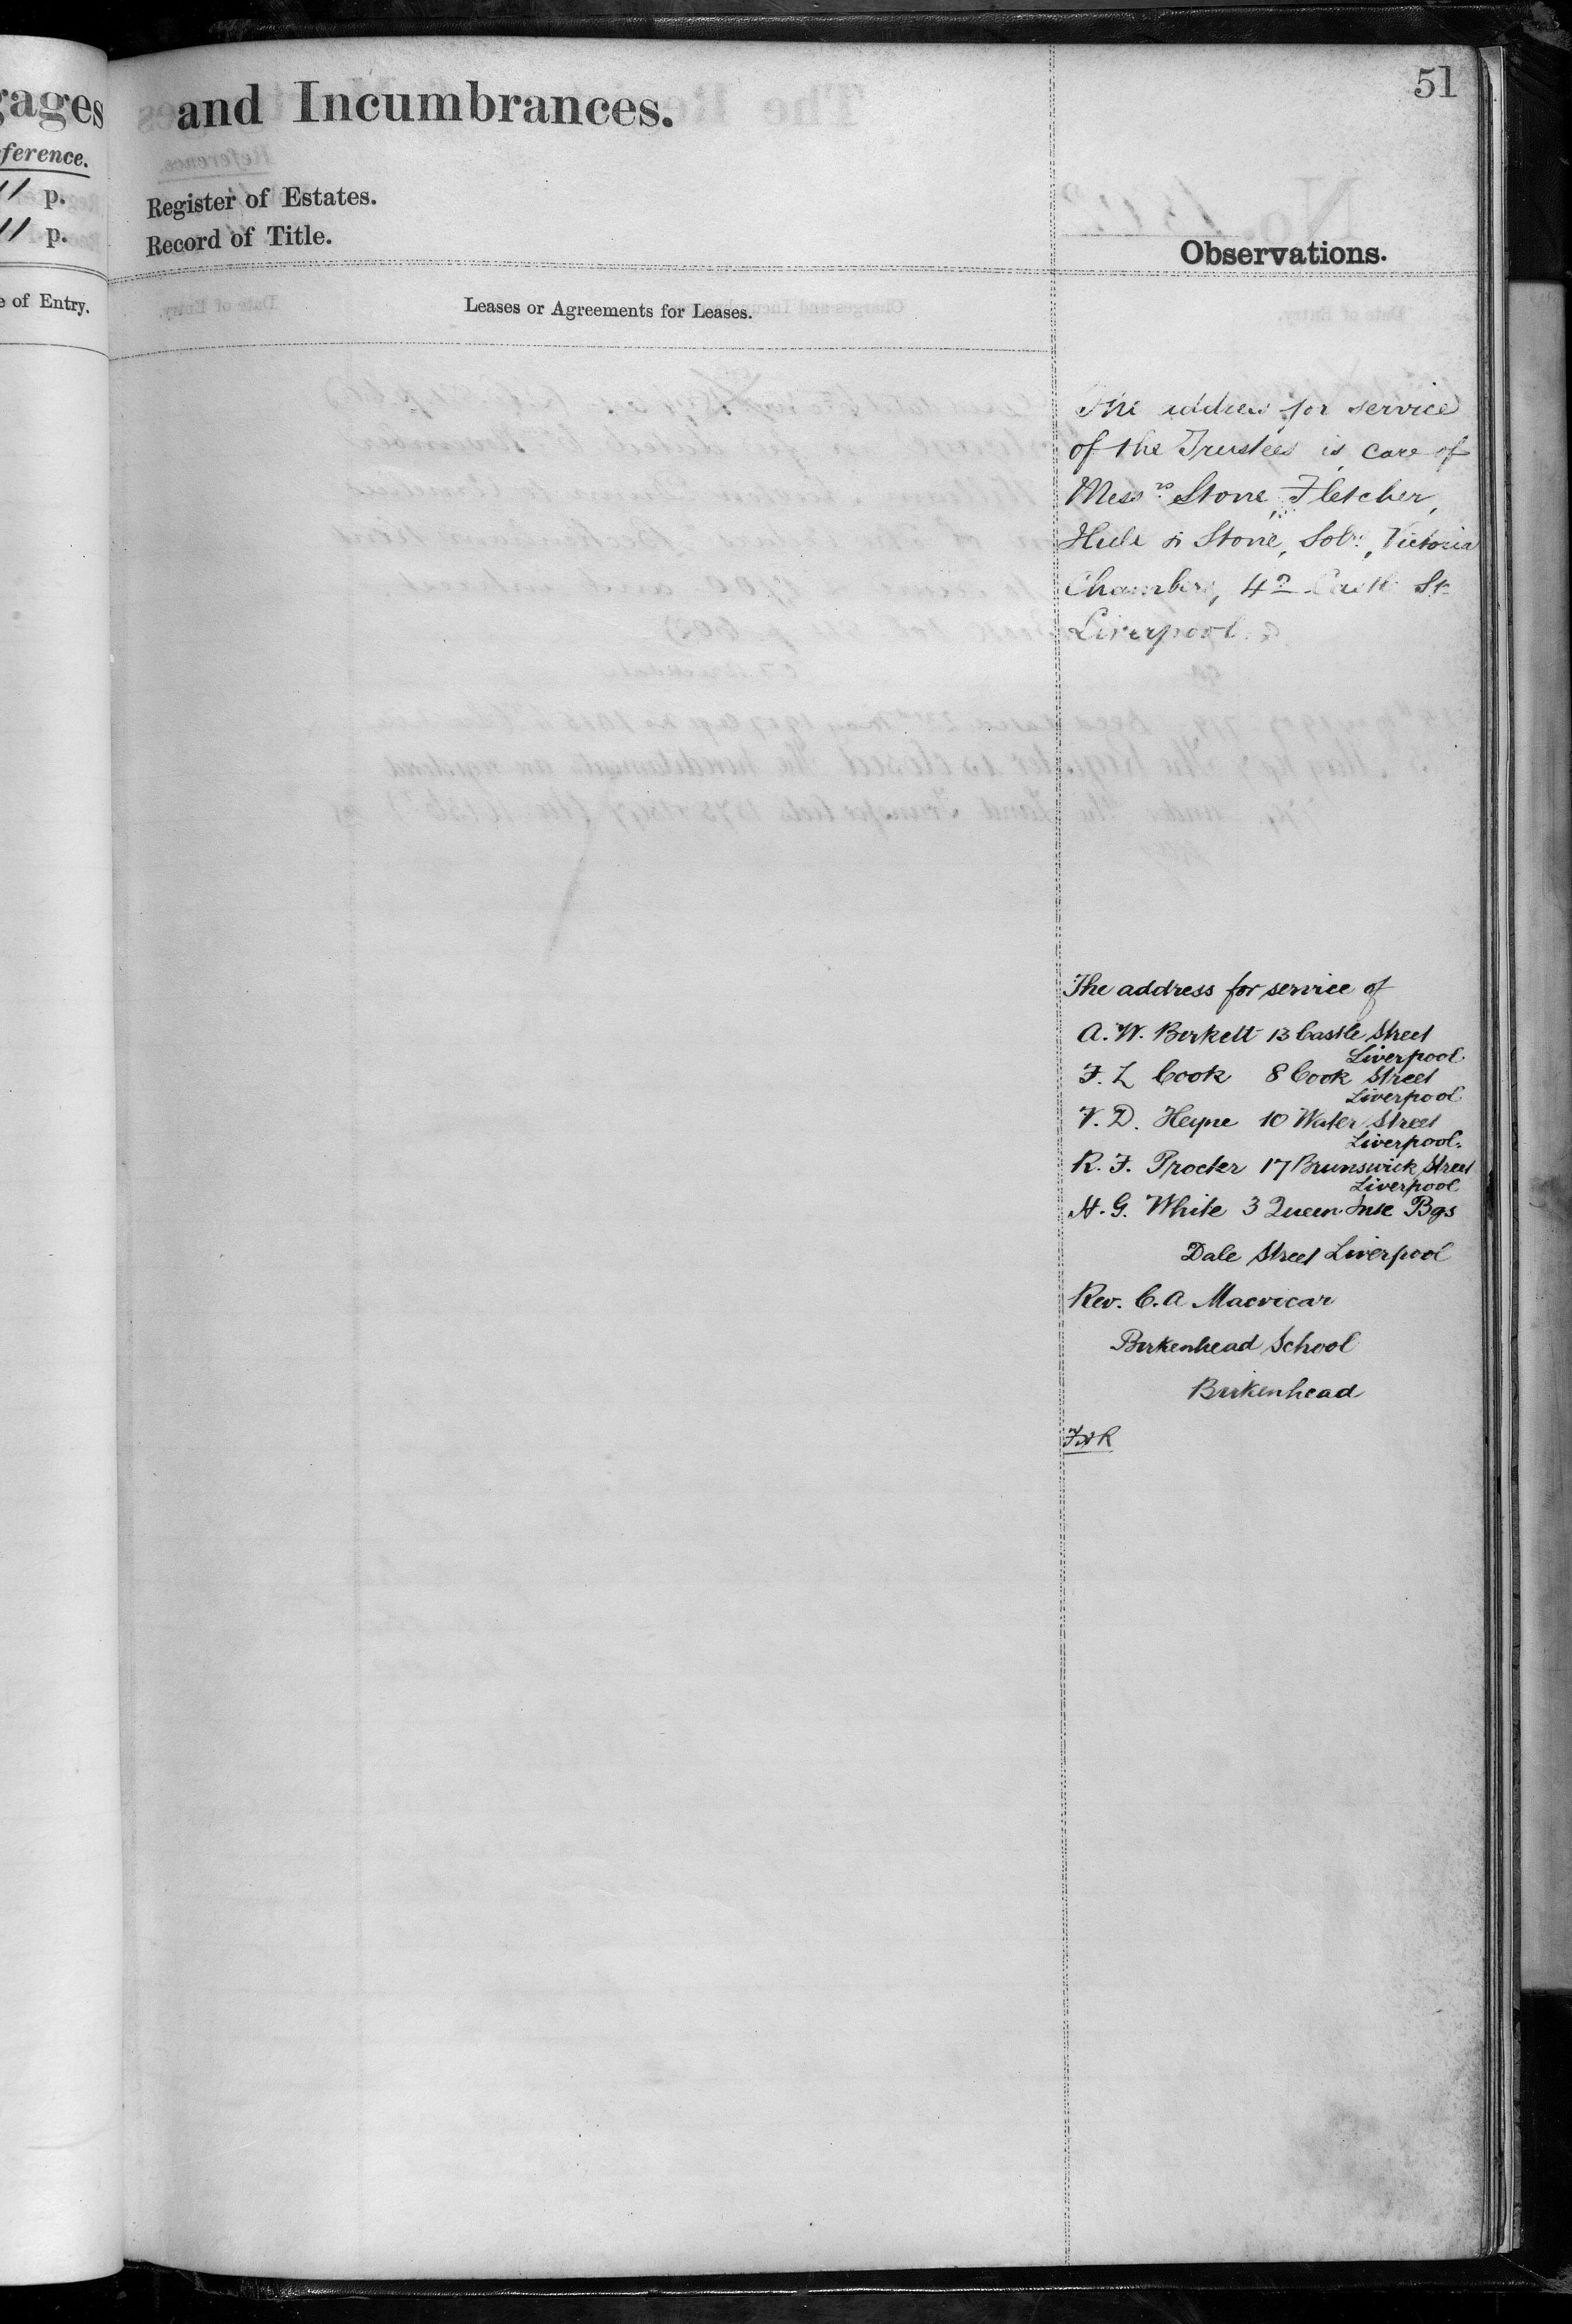 gages
ference.
11 p.
11 p.
e of Entry.
51
and Incumbrances.
Register of Estates.
Record of Title.
Observations.
Leases or Agreements for Leases.
The address for service
of the Trustees is care of
Messrs Stone, Fletcher,
Hull & Stone, Solrs, Victoria
Chambers, 42 Castle St
Liverpool
The address for service of
A. W. Berkett 13 Castle Street
Liverpool
F. L Cook 8 Cook Street
Liverpool
V. D. Heyne 10 Water Street
Liverpool.
R. F. Procter 17 Brunswick Street
Liverpool
H. G. White 3 Queen Inse Bgs
Dale Street Liverpool
Rev. C. A Macvicar
Birkenhead School
Birkenhead